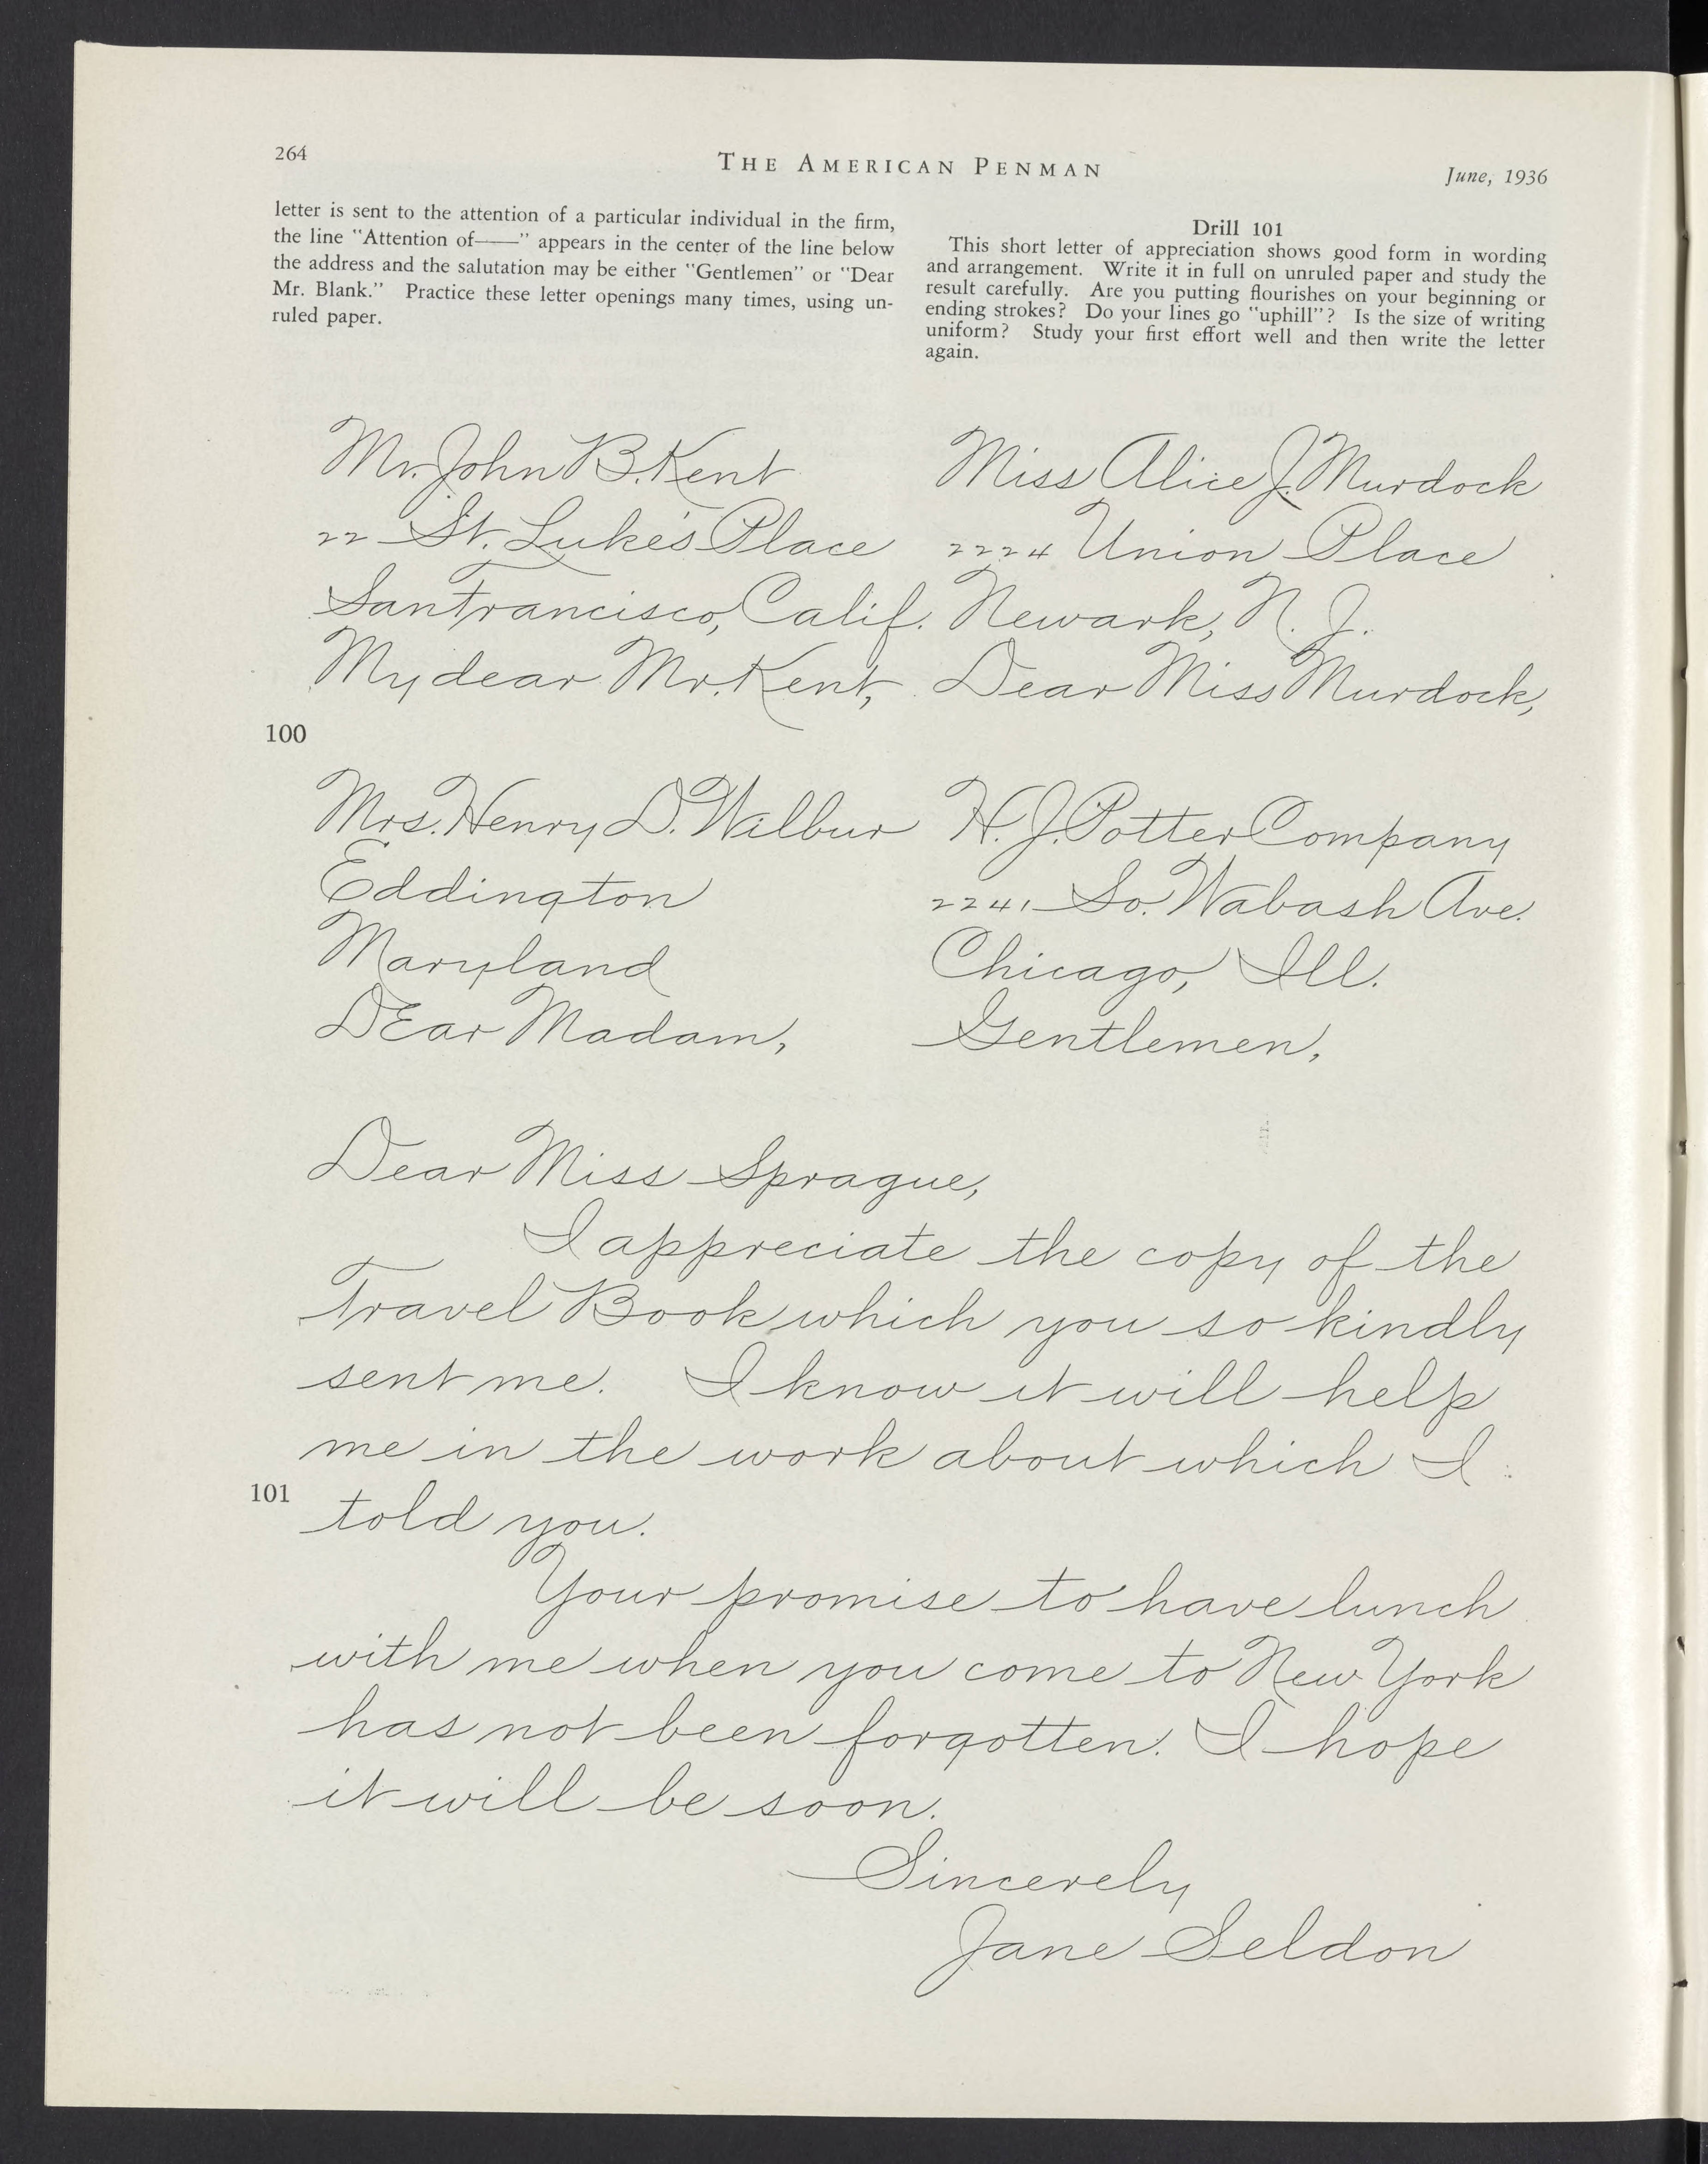 264
THE AMERICAN PENMAN
June, 1936
letter is sent to the attention of a particular individual in the firm,
the line "Attention of——" appears in the center of the line below
the address and the salutation may be either "Gentlemen" or "Dear
Mr. Blank." Practice these letter openings many times, using un-
ruled paper.
Drill 101
This short letter of appreciation shows good form in wording
and arrangement. Write it in full on unruled paper and study the
result carefully. Are you putting flourishes on your beginning or
ending strokes? Do your lines go "uphill"? Is the size of writing
uniform? Study your first effort well and then write the letter
again.
Mr. John B. Kent
22 St. Luke's Place
San Francisco, Calif.
My dear Mr. Kent,
Miss Alice J. Murdock
2224 Union Place
Newark, N. J.
Dear Miss Murdock,
100
Mrs. Henry D. Wilbur
Eddington
Maryland
DEar Madam,
H. J. Potter Company
2241 So. Wabash Ave.
Chicago, Ill.
Gentlemen,
Dear Miss Sprague,
I appreciate the copy of the
Travel Book which you so kindly
sent me. I know it will help
me in the work about which I
101
told you.
Your promise to have lunch
with me when you come to New York
has not been forgotten. I hope
it will be soon.
Sincerely
Jane Seldon